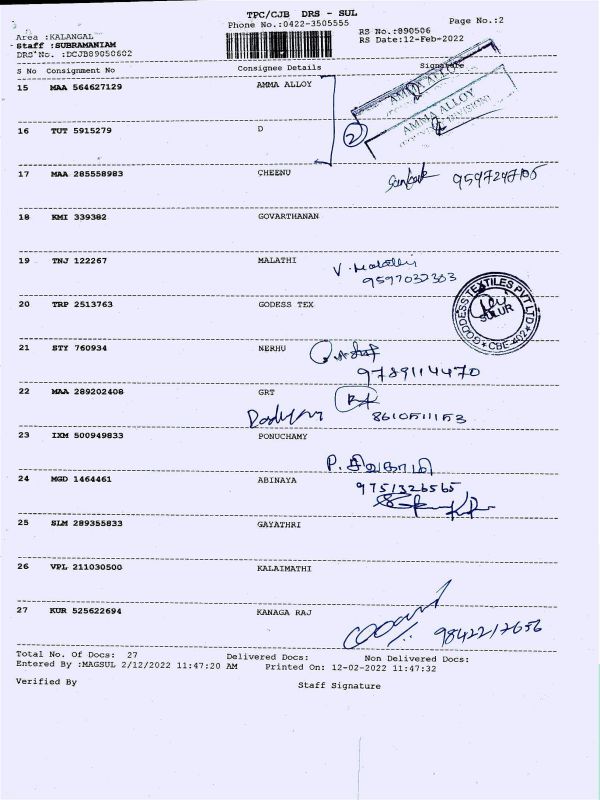 TPC/CJB DRS - SUL
Phone No.:0422-3505555
Page No.:2
Area :KALANGAL
Staff :SUBRAMANIAM
DRS No. :DCJB89050602
RS No.:890506
RS Date:12-Feb-2022
S No Consignment No Consignee Details Signature
15 MAA 564627129 AMMA ALLOY
AMMA ALLOY
AMMA ALLOY
2
16 TUT 5915279 D
17 MAA 285558983 CHEENU
9597247105
18 KMI 339382 GOVARTHANAN
19 TNJ 122267 MALATHI
V. Malathi
9597032303
20 TRP 2513763 GODESS TEX
GODDESS TEXTILES PVT LTD
SULUR
CBE-402
21 STY 760934 NERHU
9789114470
22 MAA 289202408 GRT
8610511153
23 IXM 500949833 PONUCHAMY
P. சிவகாமி
24 MGD 1464461 ABINAYA
9751326565
25 SLM 289355833 GAYATHRI
26 VPL 211030500 KALAIMATHI
27 KUR 525622694 KANAGA RAJ
9842217656
Total No. Of Docs: 27 Delivered Docs: Non Delivered Docs:
Entered By :MAGSUL 2/12/2022 11:47:20 AM Printed On: 12-02-2022 11:47:32
Verified By Staff Signature